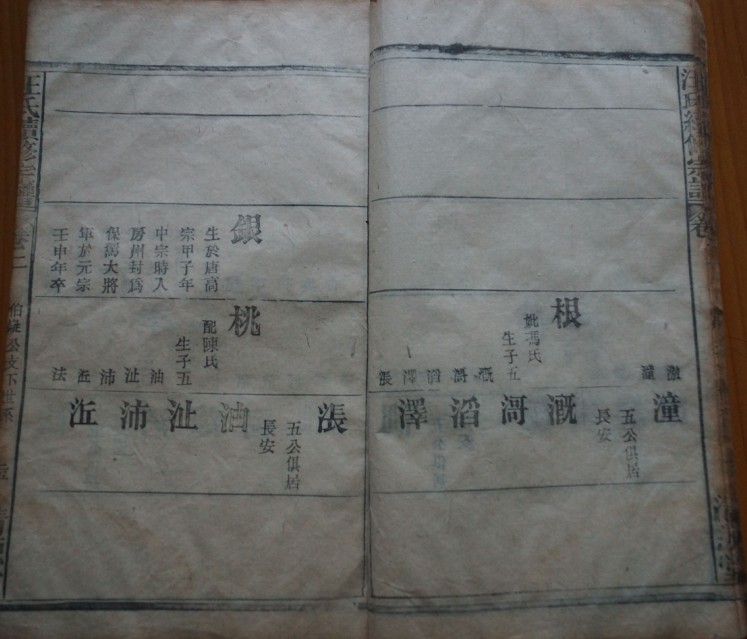 汪氏續修宗譜
潼
根
妣馮氏
生子五
溉
渮
滔
澤
漲
潼
五公俱居
長安
溉
渮
滔
澤
銀
生於唐高
宗甲子年
中宗時入
房州封爲
保駕大將
軍於元宗
壬申年卒
桃
配陳氏
生子五
油
沚
沛
法
漲
五公俱居
長安
油
沚
沛
汪氏續修宗譜
卷二
公支下世系